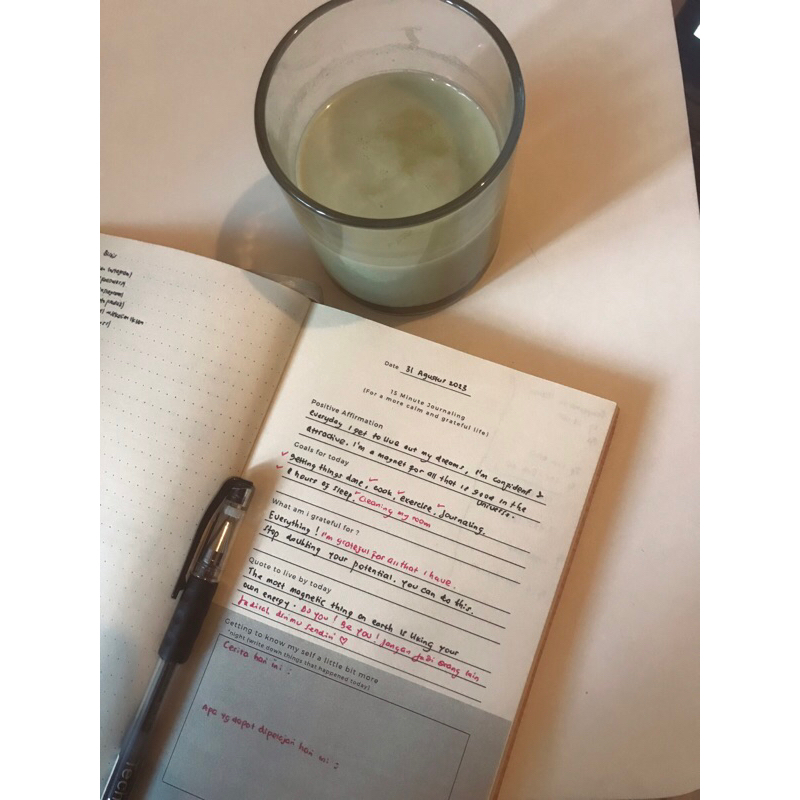 Date 31 Agustus 2023
15 Minute Journaling
(For a more calm and grateful life)
Positive Affirmation
everyday I get to live out my dreams, I'm confident &
attractive. I'm a magnet for all that is good in the
universe.
Goals for today
✓ getting things done, ✓ cook, ✓ exercise, ✓ journaling,
✓ 8 hours of sleep, ✓ cleaning my room
What am i grateful for ?
Everything ! I'm grateful for all that I have.
Stop doubting your potential. You can do this.
Quote to live by today
The most magnetic thing on earth is Using your
own energy. Do you ! Be you ! Jangan jadi orang lain
Jadilah dirimu sendiri ♡
Getting to know my self a little bit more
*night (write down things that happened today)
Cerita hari ini :
Apa yg dapat dipelajari hari ini :
Tech